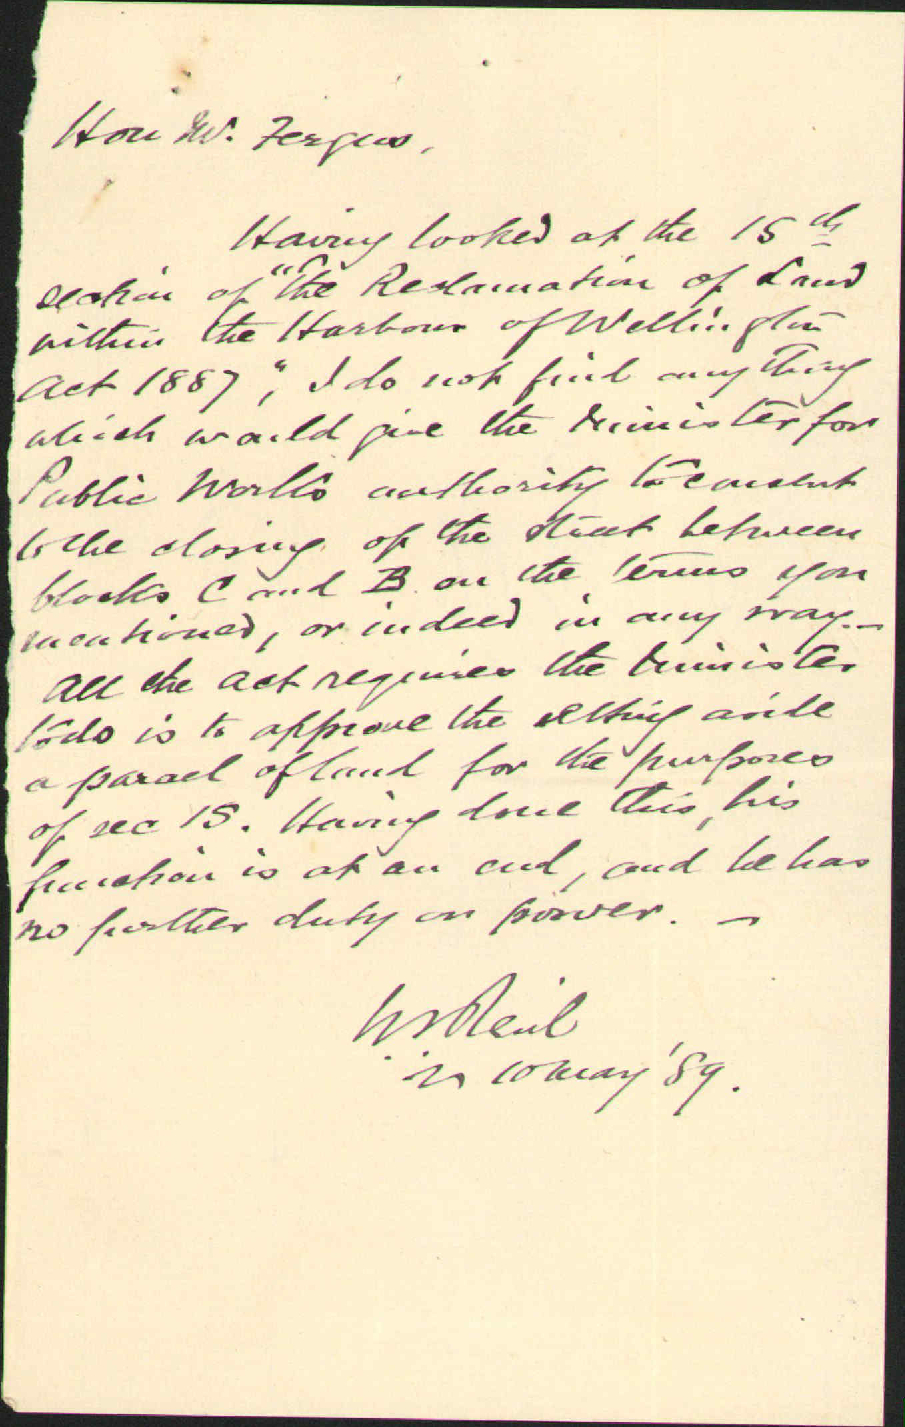 Hon Mr. Fergus,
Having looked at the 15th
section of "The Reclamation of Land
within the Harbour of Wellington
Act 1887", I do not find anything
which would give the Minister for
Public Works authority to consent
to the closing of the street between
blocks C and B on the terms you
mentioned, or indeed in any way. —
All the act requires the Minister
to do is to approve the setting aside
a parcel of land for the purposes
of sec 15. Having done this, his
function is at an end, and he has
no further duty or power. —
WS Reid
10 May '89.